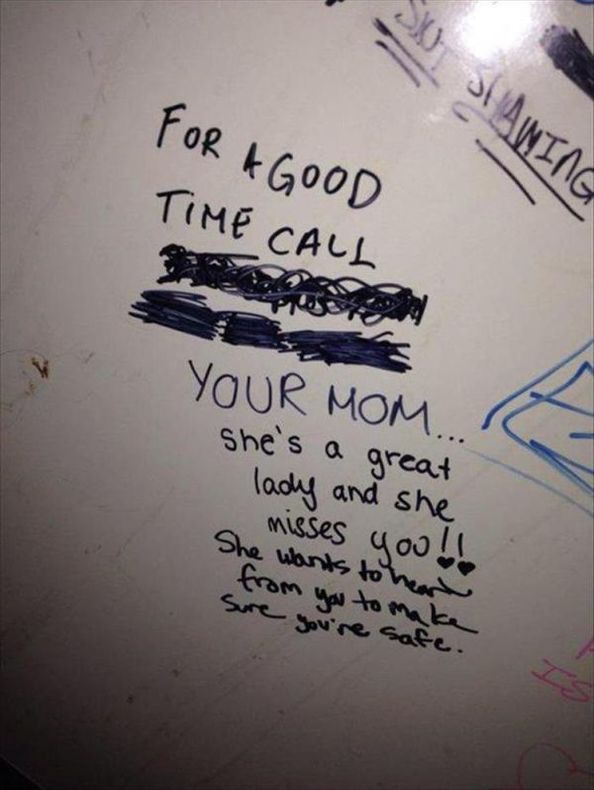 SLUT SHAMING
FOR A GOOD
TIME CALL
YOUR MOM...
she's a great
lady and she
misses you!!
She wants to hear
from you to make
sure you're safe.
IS